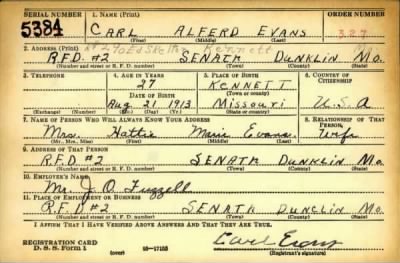 SERIAL NUMBER 1. NAME (Print) ORDER NUMBER
5384 CARL ALFERD EVANS 327
(First) (Middle) (Last)
Kennett
2. ADDRESS (Print)
R.F.D. #2 SENATH DUNKLIN MO.
(Number and street or R. F. D. number) (Town) (County) (State)
3. TELEPHONE 4. AGE IN YEARS 5. PLACE OF BIRTH 6. COUNTRY OF CITIZENSHIP
27 KENNETT
DATE OF BIRTH (Town or county)
Aug 21 1913 Missouri U.S.A
(Exchange) (Number) (Mo.) (Day) (Yr.) (State or country)
7. NAME OF PERSON WHO WILL ALWAYS KNOW YOUR ADDRESS 8. RELATIONSHIP OF THAT PERSON
Mrs. Hattie Marie Evans. Wife
(Mr., Mrs., Miss) (First) (Middle) (Last)
9. ADDRESS OF THAT PERSON
R.F.D #2 SENATH DUNKLIN MO.
(Number and street or R. F. D. number) (Town) (County) (State)
10. EMPLOYER'S NAME
Mr. J. O. Fuzzell
11. PLACE OF EMPLOYMENT OR BUSINESS
R.F.D #2 SENATH DUNCLIN MO.
(Number and street or R. F. D. number) (Town) (County) (State)
I AFFIRM THAT I HAVE VERIFIED ABOVE ANSWERS AND THAT THEY ARE TRUE.
REGISTRATION CARD
D. S. S. Form 1 (over) 16-17105 Carl Evans
(Registrant's signature)